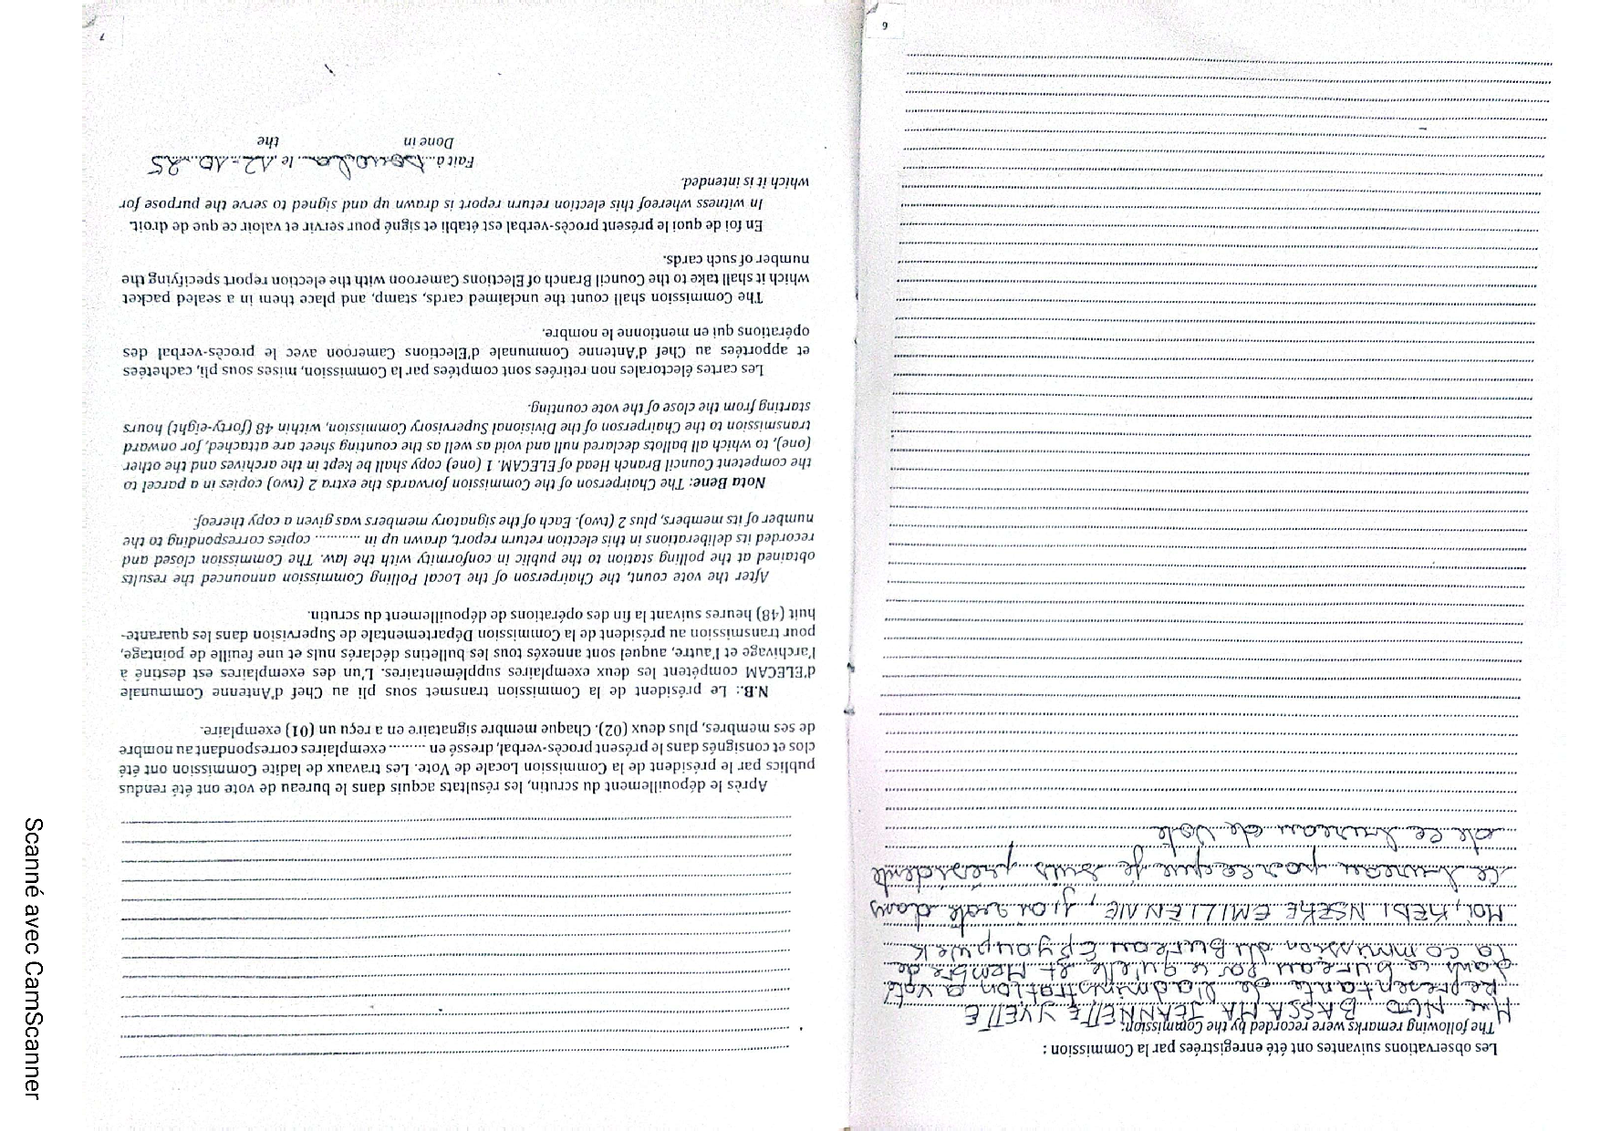 6
Les observations suivantes ont été enregistrées par la Commission :
The following remarks were recorded by the Commission:
Mme NGO BASSA MA JEANNETTE YVETTE
Representante de l'administration a voté
dans ce bureau par ce qu'elle est Membre de
la commission du Bureau Epyoupwek
Moi, KEDI NSEKE EMILIENNE, j'ai voté dans
ce bureau parceque je suis présidente
de ce bureau de vote
7
Après le dépouillement du scrutin, les résultats acquis dans le bureau de vote ont été rendus
publics par le président de la Commission Locale de Vote. Les travaux de ladite Commission ont été
clos et consignés dans le présent procès-verbal, dressé en ......... exemplaires correspondant au nombre
de ses membres, plus deux (02). Chaque membre signataire en a reçu un (01) exemplaire.
N.B.: Le président de la Commission transmet sous pli au Chef d'Antenne Communale
d'ELECAM compétent les deux exemplaires supplémentaires. L'un des exemplaires est destiné à
l'archivage et l'autre, auquel sont annexés tous les bulletins déclarés nuls et une feuille de pointage,
pour transmission au président de la Commission Départementale de Supervision dans les quarante-
huit (48) heures suivant la fin des opérations de dépouillement du scrutin.
After the vote count, the Chairperson of the Local Polling Commission announced the results
obtained at the polling station to the public in conformity with the law. The Commission closed and
recorded its deliberations in this election return report, drawn up in ............ copies corresponding to the
number of its members, plus 2 (two). Each of the signatory members was given a copy thereof.
Nota Bene: The Chairperson of the Commission forwards the extra 2 (two) copies in a parcel to
the competent Council Branch Head of ELECAM. 1 (one) copy shall be kept in the archives and the other
(one), to which all ballots declared null and void as well as the counting sheet are attached, for onward
transmission to the Chairperson of the Divisional Supervisory Commission, within 48 (forty-eight) hours
starting from the close of the vote counting.
Les cartes électorales non retirées sont comptées par la Commission, mises sous pli, cachetées
et apportées au Chef d'Antenne Communale d'Elections Cameroon avec le procès-verbal des
opérations qui en mentionne le nombre.
The Commission shall count the unclaimed cards, stamp, and place them in a sealed packet
which it shall take to the Council Branch of Elections Cameroon with the election report specifying the
number of such cards.
En foi de quoi le présent procès-verbal est établi et signé pour servir et valoir ce que de droit.
In witness whereof this election return report is drawn up and signed to serve the purpose for
which it is intended.
Fait à Douala le 12-10-25
Done in the
Scanné avec CamScanner